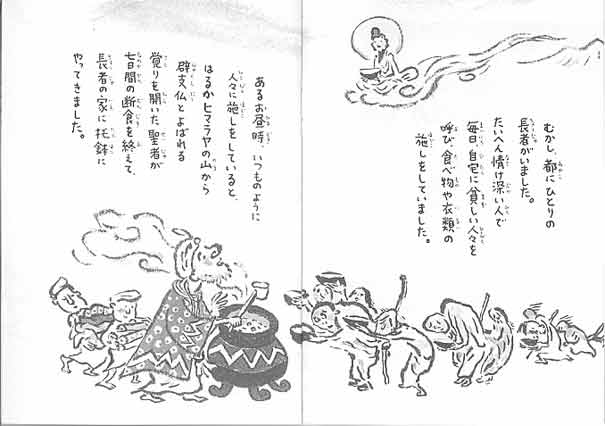 むかし、都にひとりの
長者がいました。
たいへん情け深い人で
毎日、自宅に貧しい人々を
呼び、食べ物や衣類の
施しをしていました。
あるお昼時、いつものように
人々に施しをしていると、
はるかヒマラヤの山から
辟支仏とよばれる
覚りを開いた聖者が
七日間の断食を終えて、
長者の家に托鉢に
やってきました。